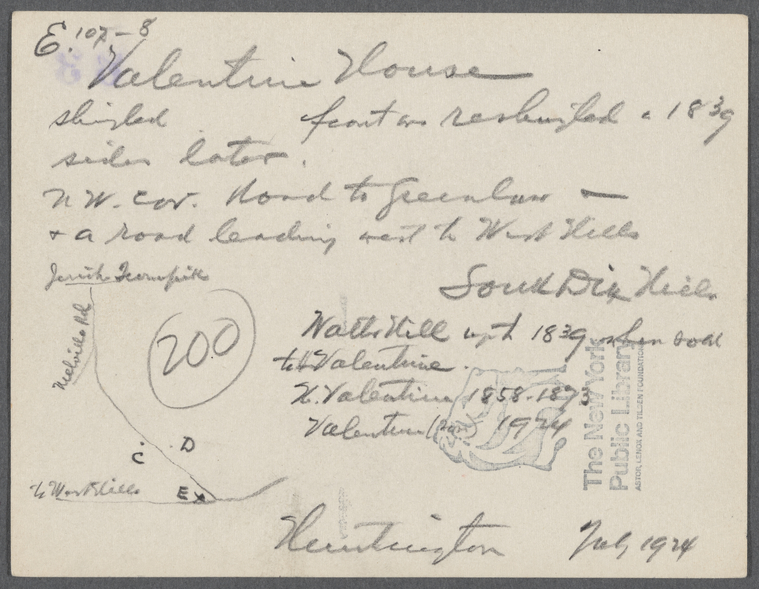 E. 107-8
Valentine House
shingled front was reshingled 1839
sides later.
N.W. cor. Road to Greenlawn —
+ a road leading west to West Hills
Jericho Turnpike
South Dix Hills
Melville Rd
200
Hill until 1839 when sold
to H Valentine.
H. Valentine 1858-
Valentine 1924
C
D
E x
to West Hills
The New York
Public Library
ASTOR, LENOX AND TILDEN FOUNDATIONS
Huntington July 1924